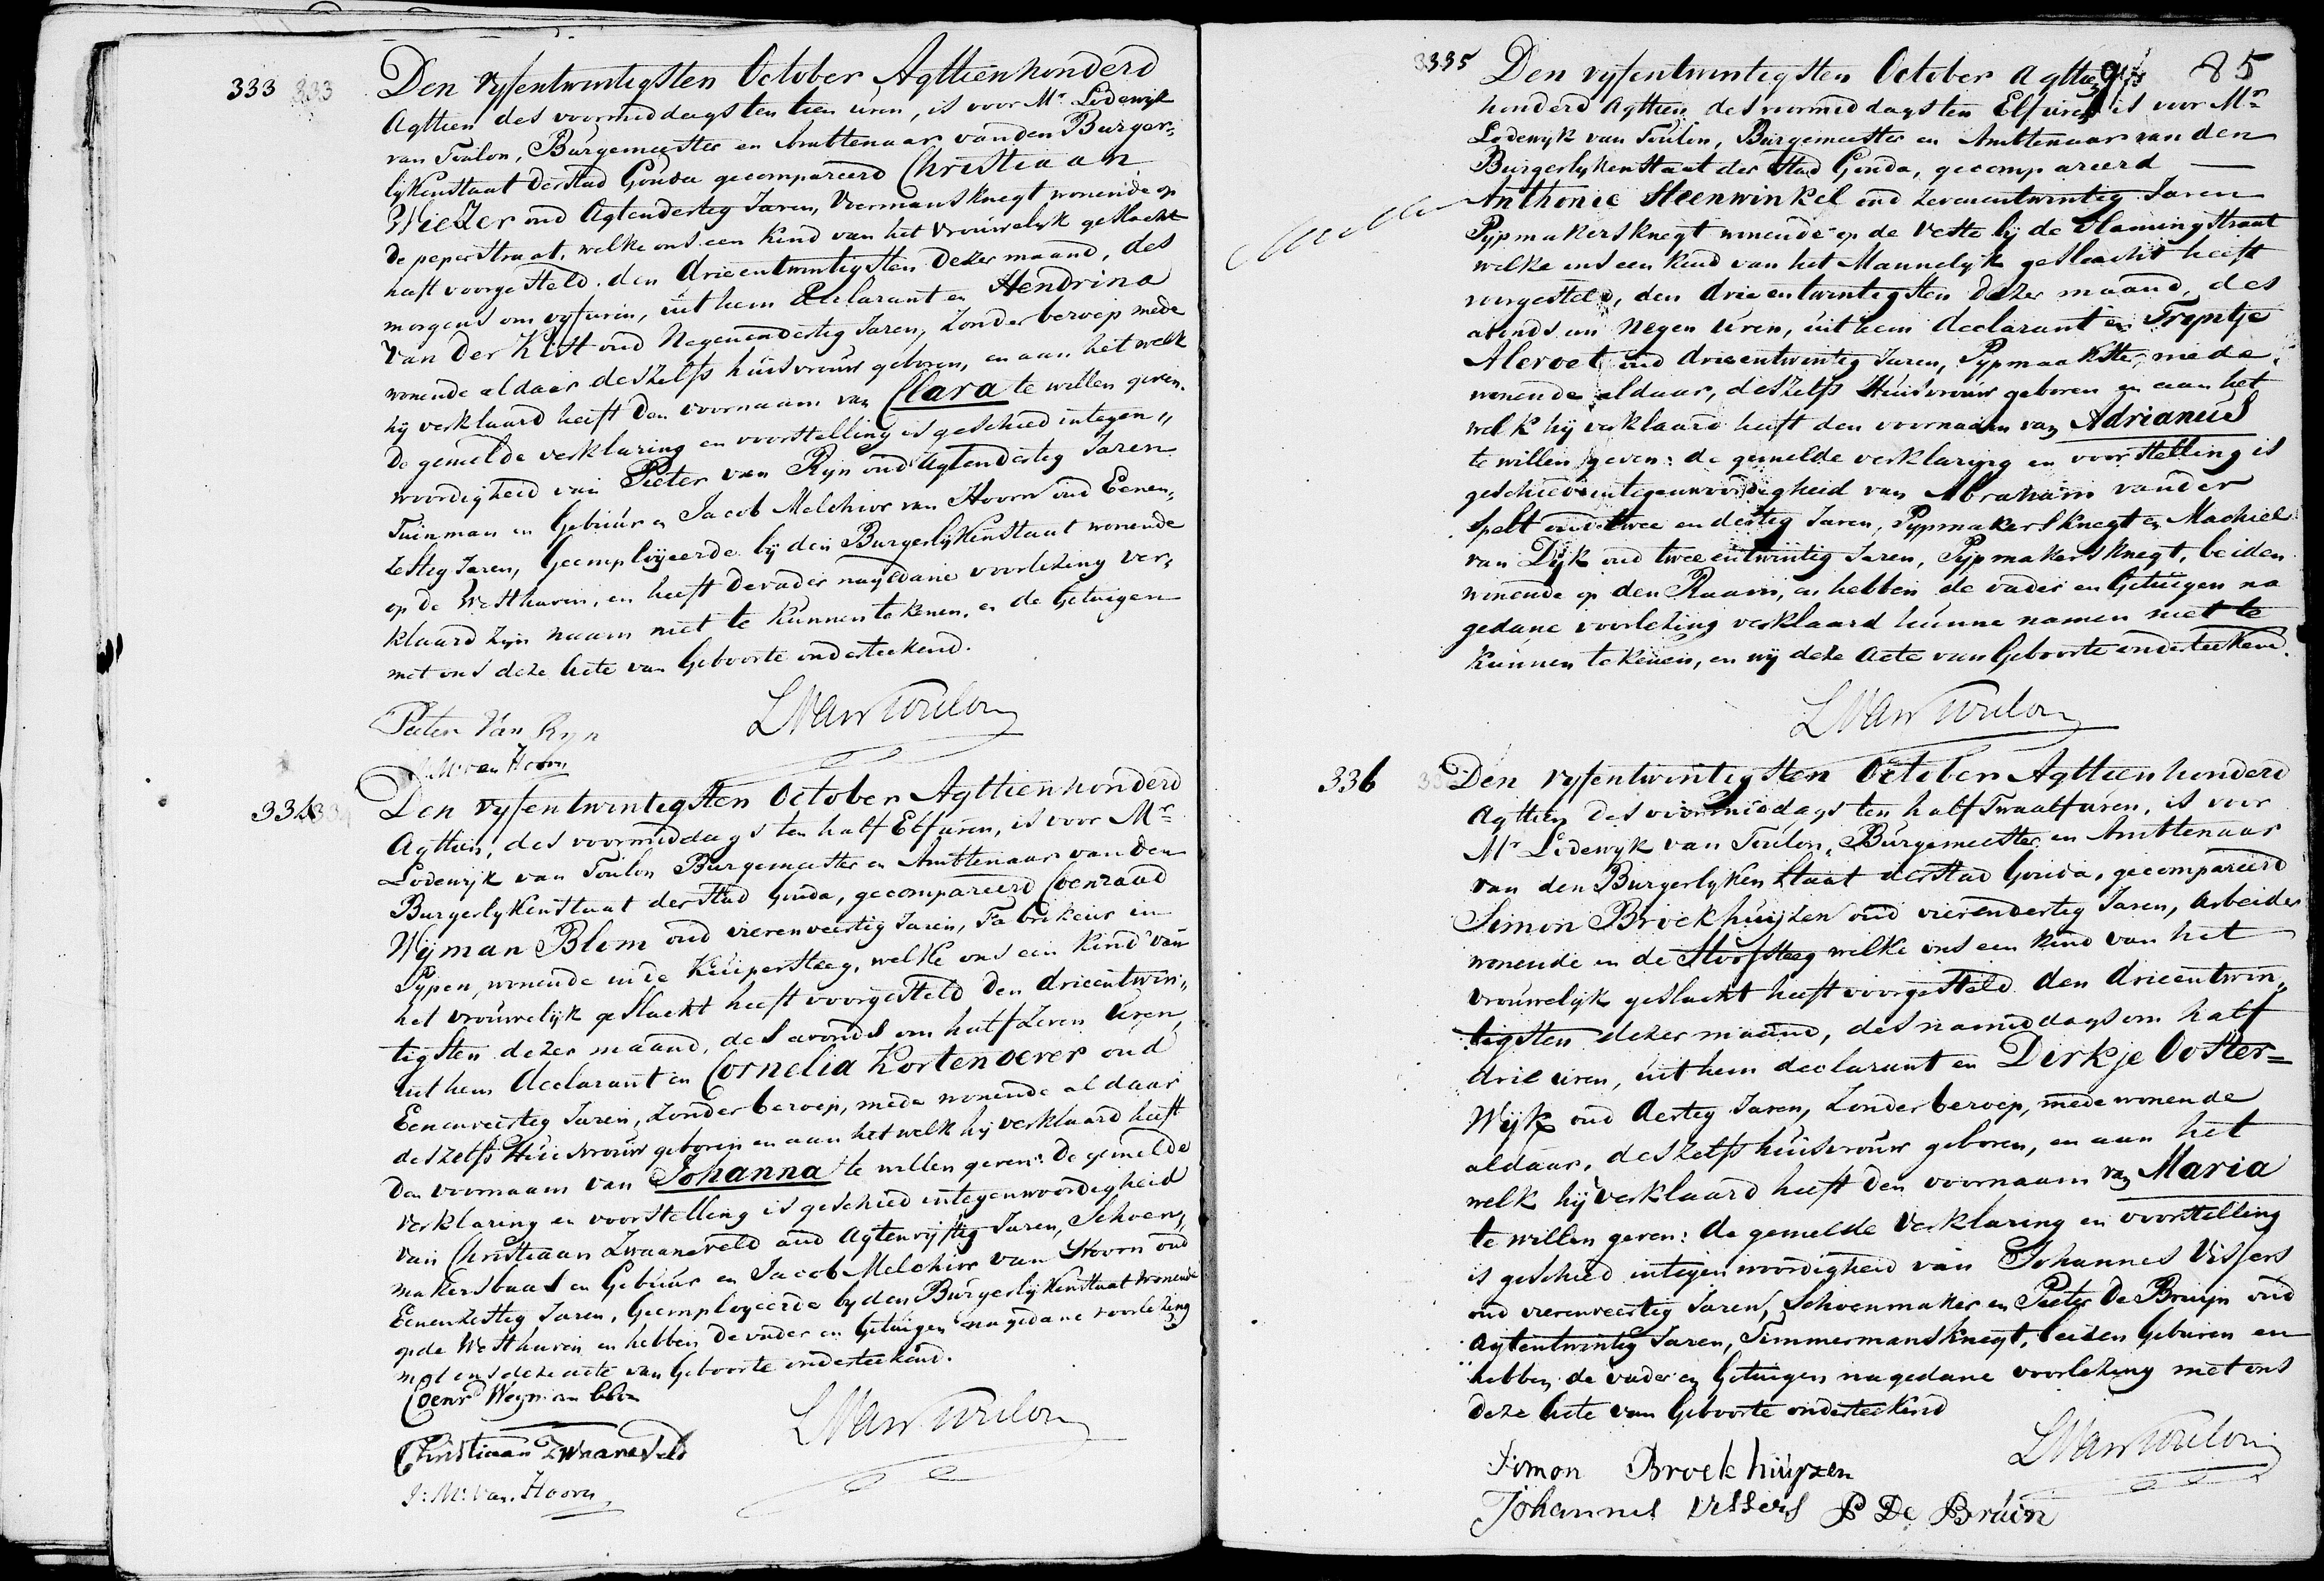 333 333
Den vyfentwintigsten October Agttienhonderd
Agttien des voormiddags ten tien uren, is voor Mr Lodewijk
van Toulon, Burgemeester en Amttenaar van den Burger,
lykenstaat der stad Gouda gecompareerd Christiaan
Wiezer oud Agtendertig Jaren, Voermansknegt wonende op
de peperstraat, welke ons een kind van het vrouwelyk geslacht
heeft voorgesteld den drieentwintigsten dezer maand, des
morgens om vyf uren, uit hem declarant en Hendrina
van der Kist oud Negenendertig Jaren, zonder beroep mede
wonende aldaar deszelfs huisvrouw geboren, en aan het welk
hij verklaard heeft den voornaam van Clara te willen geven.
De gemelde verklaring en voorstelling is geschied in tegen"
woordigheid van Pieter van Ryn oud Agtendertig Jaren
Tuinman en Gebuur en Jacob Melchior van Hoorn oud Eenen,
zestig Jaren, Geemployeerde bij den Burgerlykenstaat wonende
op de Westhaven, en heeft de vader na gedane voorlezing ver,
klaard zyn naam niet te kunnen tekenen, en de Getuigen
met ons deze Acte van Geboorte onderteekend.
Pieter Van Ryn
LVan Toulon
J. M: van Hoorn
334 334
Den vyfentwintigsten October Agttienhonderd
Agttien, des voormiddags ten half Elf uren, is voor Mr
Lodewyk van Toulon Burgemeester en Amttenaar van den
Burgerlykenstaat der stad Gouda, gecompareerd Coenraad
Wijman Blom oud vierenveertig Jaren, Fabrikeur in
Pypen, wonende in de Kuipersteeg, welke ons een kind van
het vrouwelyk geslacht heeft voorgesteld den drieentwin"
tigsten dezer maand, des avonds om half zeven uren,
uit hem declarant en Cornelia Kortenoever oud
Eenenveertig Jaren, zonder beroep, mede wonende aldaar
deszelfs Huisvrouw geboren en aan het welk hij verklaard heeft
den voornaam van Johanna te willen geven: De gemelde
verklaring en voorstelling is geschied in tegenwoordigheid
van Christiaan Zwaaneveld oud Agtenvijftig Jaren, Schoen,
makersbaas en Gebuur en Jacob Melchior van Hoorn oud
Eenenzestig Jaren, Geemployeerde by den Burgerlykenstaat wonende
op de Westhaven en hebben de vader en Getuigen na gedane voorlezing
met ons deze acte van Geboorte onderteekend.
Coenrd Weyman Blom
LVan Toulon
Christiaan Zwaaneveld
J: M: van Hoorn
85
3335
Den vyfentwintigsten October Agttien
honderd Agttien des voormiddags ten Elf uren is voor Mr
Lodewyk van Toulon, Burgemeester en Amttenaar van den
Burgerlykenstaat der Stad Gouda, gecompareerd
Anthonie Steenwinkel oud zevenentwintig Jaren
Pypmakersknegt wonende op de Veste bij de Vlamingstraat
welke ons een kind van het Mannelyk geslacht heeft
voorgesteld, den drieentwintigsten dezer maand, des
avonds om Negen uren, uit hem declarant en Tryntje
Alevoet oud drieentwintig Jaren, Pypmaakster, mede
wonende aldaar, deszelfs Huisvrouw geboren en aan het
welk hij verklaard heeft den voornaam van Adrianus
te willen geven: de gemelde verklaring en voorstelling is
geschied in tegenwoordigheid van Abraham van der
Spelt oud twee en dertig Jaren, Pypmakersknegt en Machiel
van Dijk oud twee entwintig Jaren, Pypmakersknegt, beiden
wonende op den Raam, en hebben de vader en Getuigen na
gedane voorlezing verklaard hunne namen niet te
kunnen tekenen, en wij deze Acte van Geboorte onderteekend.
LVan Toulon
336
Den vyfentwintigsten October Agttienhonderd
Agttien des voormiddags ten half Twaalf uren, is voor
Mr Lodewyk van Toulon, Burgemeester en Amttenaar
van den Burgerlyken Staat der Stad Gouda, gecompareerd
Simon Broekhuijzen oud vierendertig Jaren, Arbeider
wonende in de Stoofsteeg welke ons een kind van het
vrouwelijk geslacht heeft voorgesteld den drieentwin"
tigsten dezer maand, des namiddags om half
drie uren, uit hem declarant en Dirkje Ooster=
Wijk oud dertig Jaren, Zonder beroep, mede wonende
aldaar, deszelfs huisvrouw geboren, en aan het
welk hij verklaard heeft den voornaam van Maria
te willen geven: de gemelde verklaring en voorstelling
is geschied in tegenwoordigheid van Johannes Vissers
oud vierenveertig Jaren, Schoenmaker en Pieter De Bruijn oud
Agtentwintig Jaren, Timmermansknegt, beiden Geburen en
hebben de vader en Getuigen na gedane voorlezing met ons
deze Acte van Geboorte onderteekend
LVan Toulon
Simon Broekhuijzen
Johannes Vissers P De Bruin